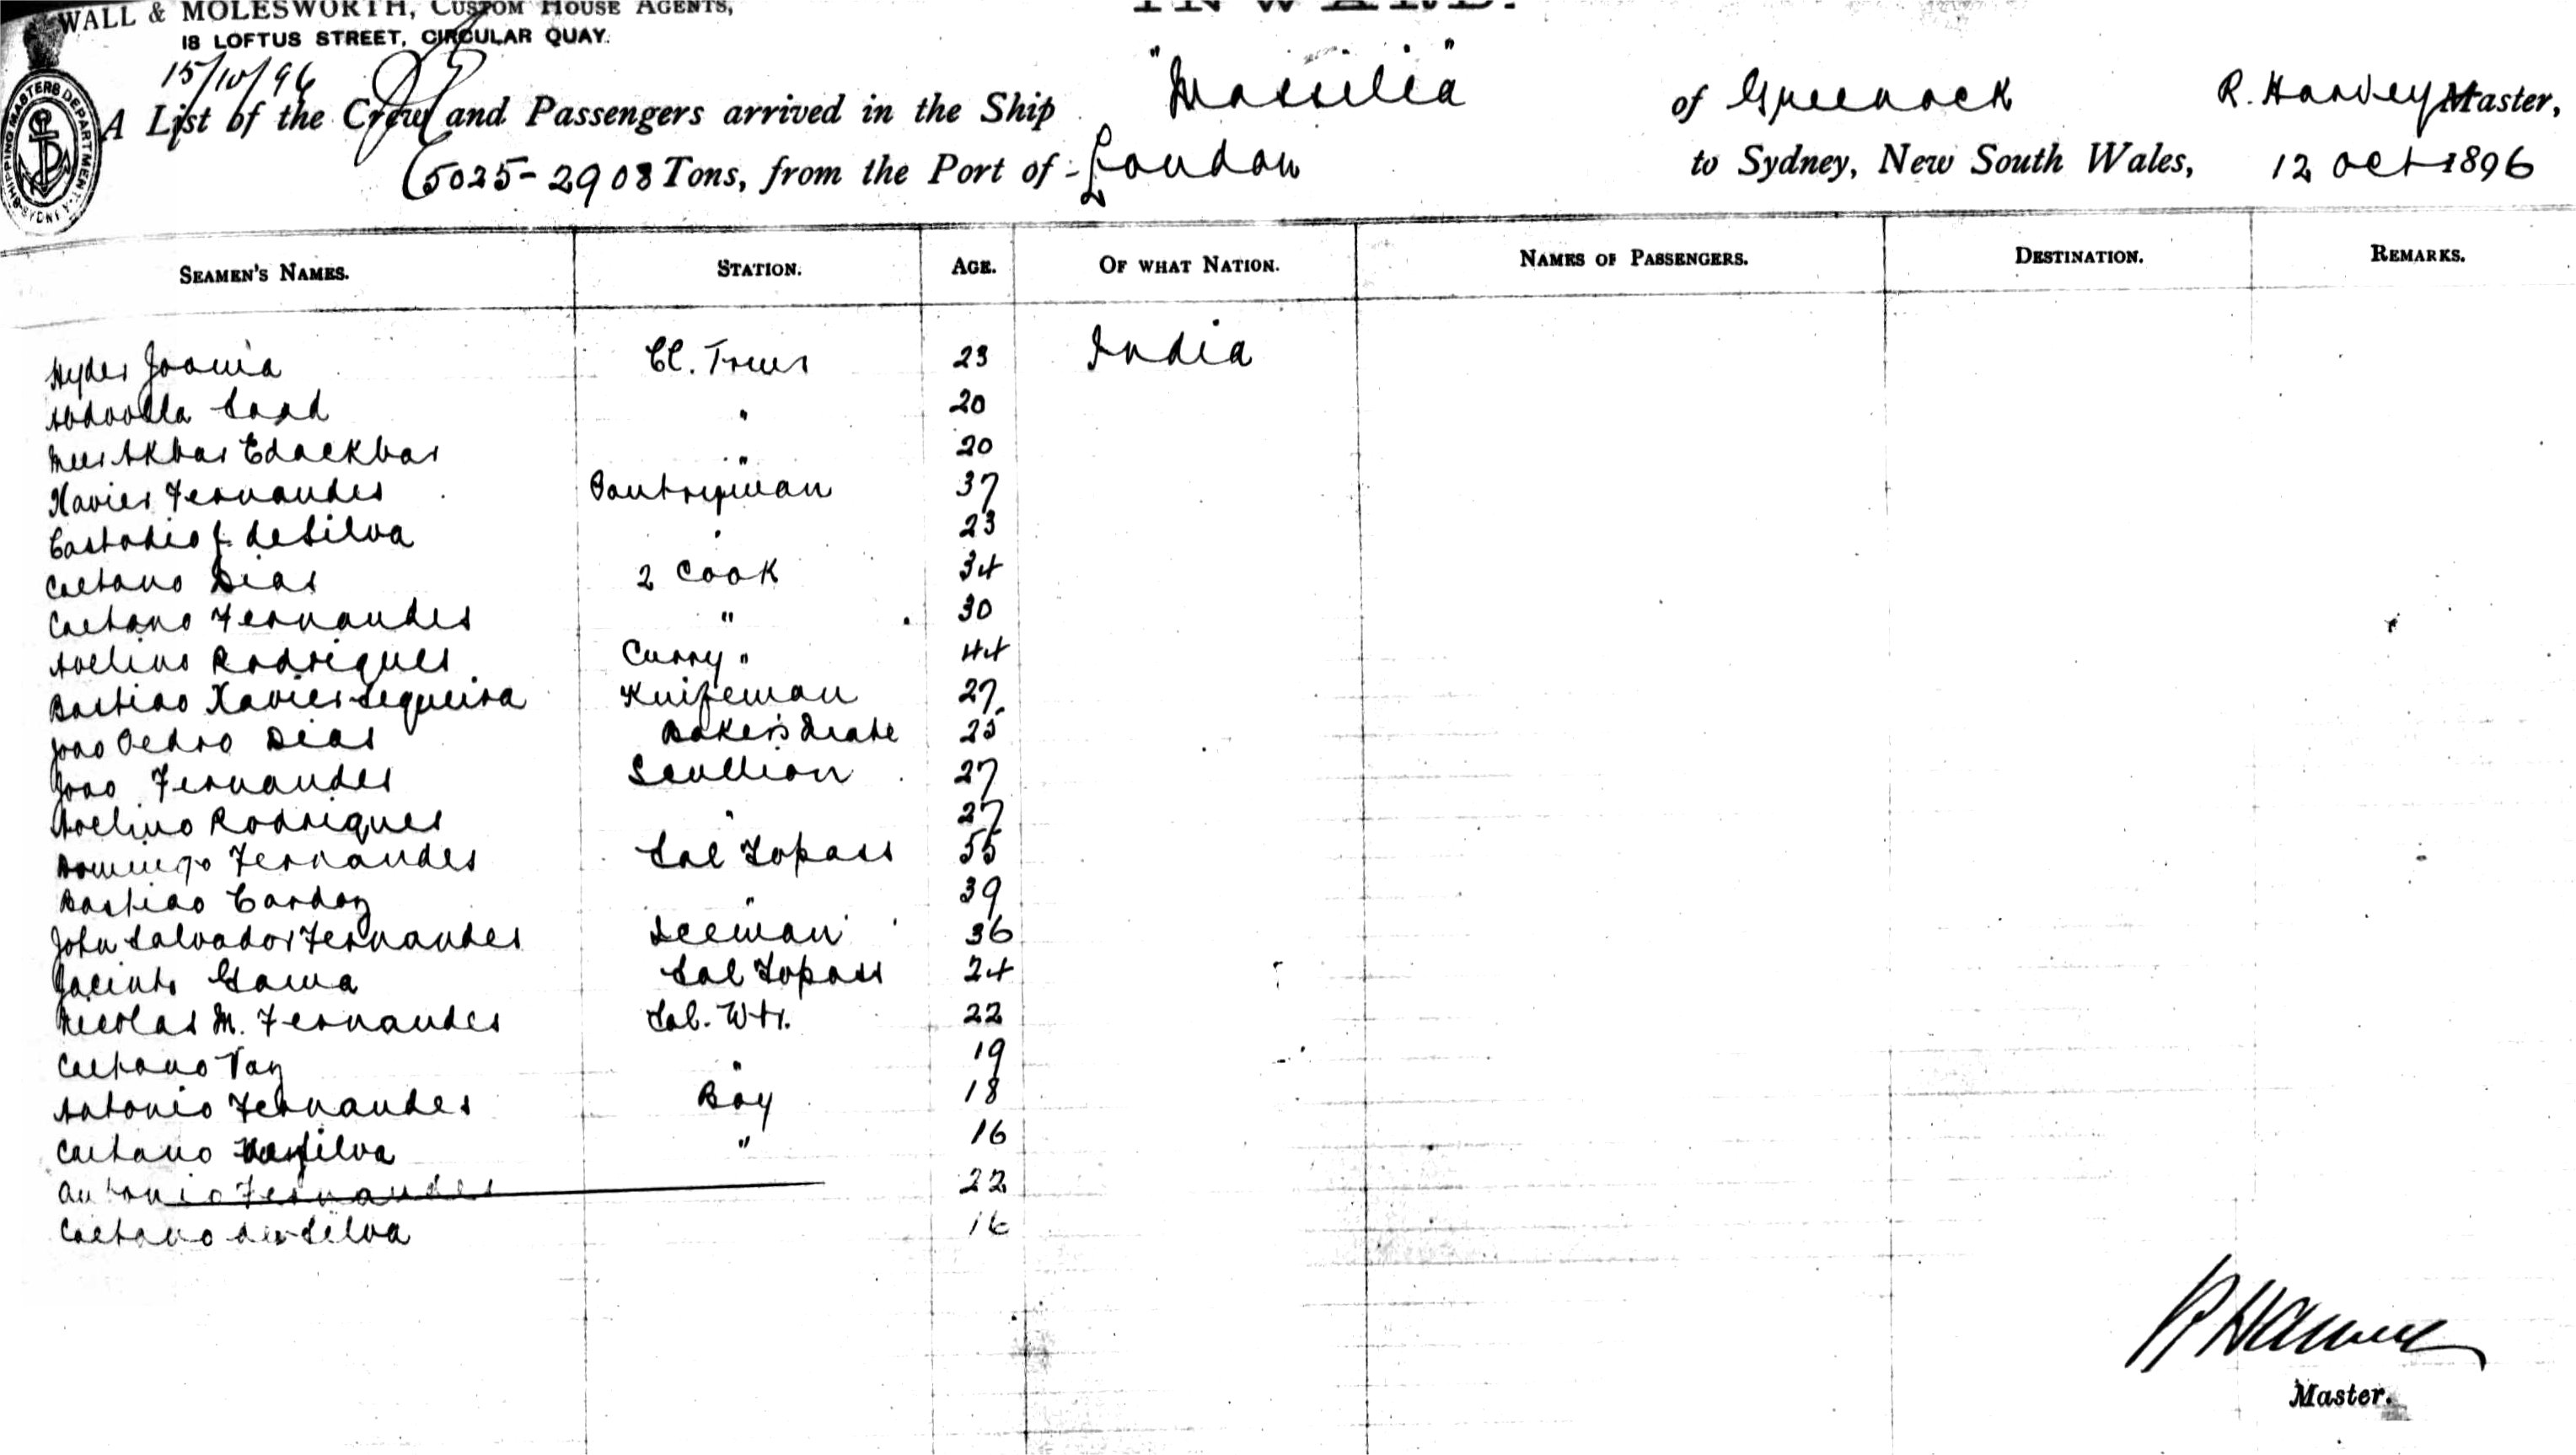 WALL & MOLESWORTH, CUSTOM HOUSE AGENTS,
18 LOFTUS STREET, CIRCULAR QUAY.
INWARD.
15/10/96
SHIPPING MASTERS DEPARTMENT SYDNEY
A List of the Crew and Passengers arrived in the Ship "Massilia" of Greenock R. Harvey Master,
5025-2908 Tons, from the Port of London to Sydney, New South Wales, 12 Oct 1896
SEAMEN'S NAMES. STATION. AGE. OF WHAT NATION. NAMES OF PASSENGERS. DESTINATION. REMARKS.
Hyder Jooma Cl. Trmr 23 India
Abdoolla Saad " 20
Meer Akbar Edackbar " 20
Xavier Fernandes Pantryman 37
Costodio J. deSilva " 23
Caetano Dias 2 Cook 34
Caetano Fernandes " 30
Avelino Rodrigues Curry " 44
Bastiao Xavier Sequeira Knifeman 27
Joao Pedro Dias Baker's Mate 25
Joao Fernandes Scullion 27
Avelino Rodrigues " 27
Domingo Fernandes Sal Topass 55
Bastiao Cardoz " 39
John Salvador Fernandes Iceman 36
Jacinto Gama Sal Topass 24
Nicolas M. Fernandes Sal. Wtr. 22
Caetano Vaz " 19
Antonio Fernandes Boy 18
Caetano Silva " 16
Antonio Fernandes 22
Caetano da Silva 16
R Harvey
Master.